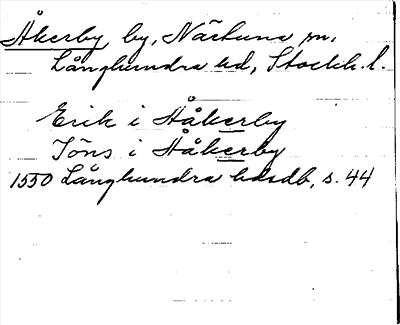 Åkerby by, Närtuna sn,
Långhundra hd, Stockh. l.
Erik i Håkerby
Jöns i Håkerby
1550 Långhundra hdsdb, s. 44